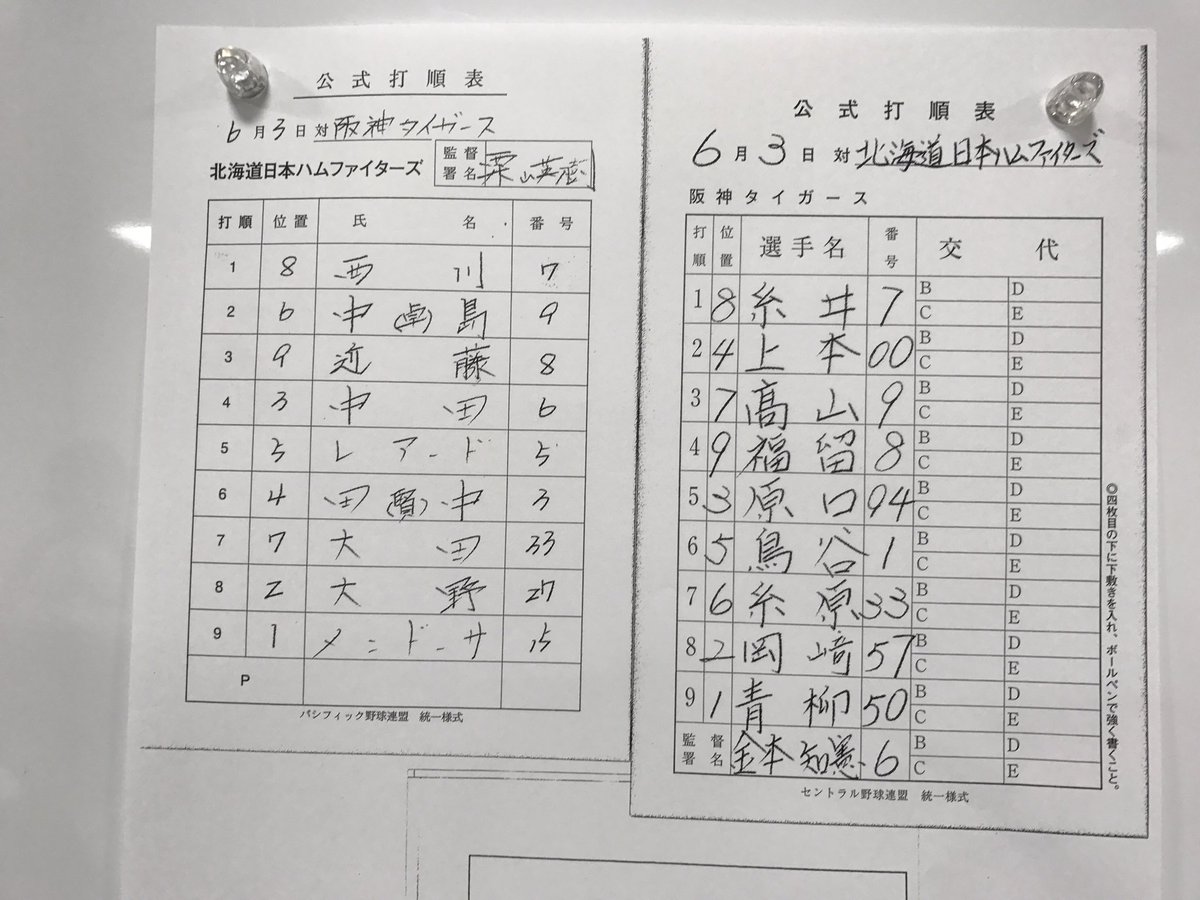 公式打順表
6月3日対阪神タイガース
北海道日本ハムファイターズ 監督署名 栗山英樹
打順 位置 氏名 番号
1 8 西川 7
2 6 中(卓)島 9
3 9 近藤 8
4 3 中田 6
5 5 レアード 5
6 4 田(賢)中 3
7 7 大田 33
8 2 大野 27
9 1 メンドーサ 15
P
パシフィック野球連盟 統一様式
公式打順表
6月3日 対北海道日本ハムファイターズ
阪神タイガース
打順 位置 選手名 番号 交代
1 8 糸井 7 B D
C E
2 4 上本 00 B D
C E
3 7 髙山 9 B D
C E
4 9 福留 8 B D
C E
5 3 原口 94 B D
C E
6 5 鳥谷 1 B D
C E
7 6 糸原 33 B D
C E
8 2 岡﨑 57 B D
C E
9 1 青柳 50 B D
C E
監督署名 金本知憲 6 B D
C E
セントラル野球連盟 統一様式
◎四枚目の下に下敷きを入れ、ボールペンで強く書くこと。